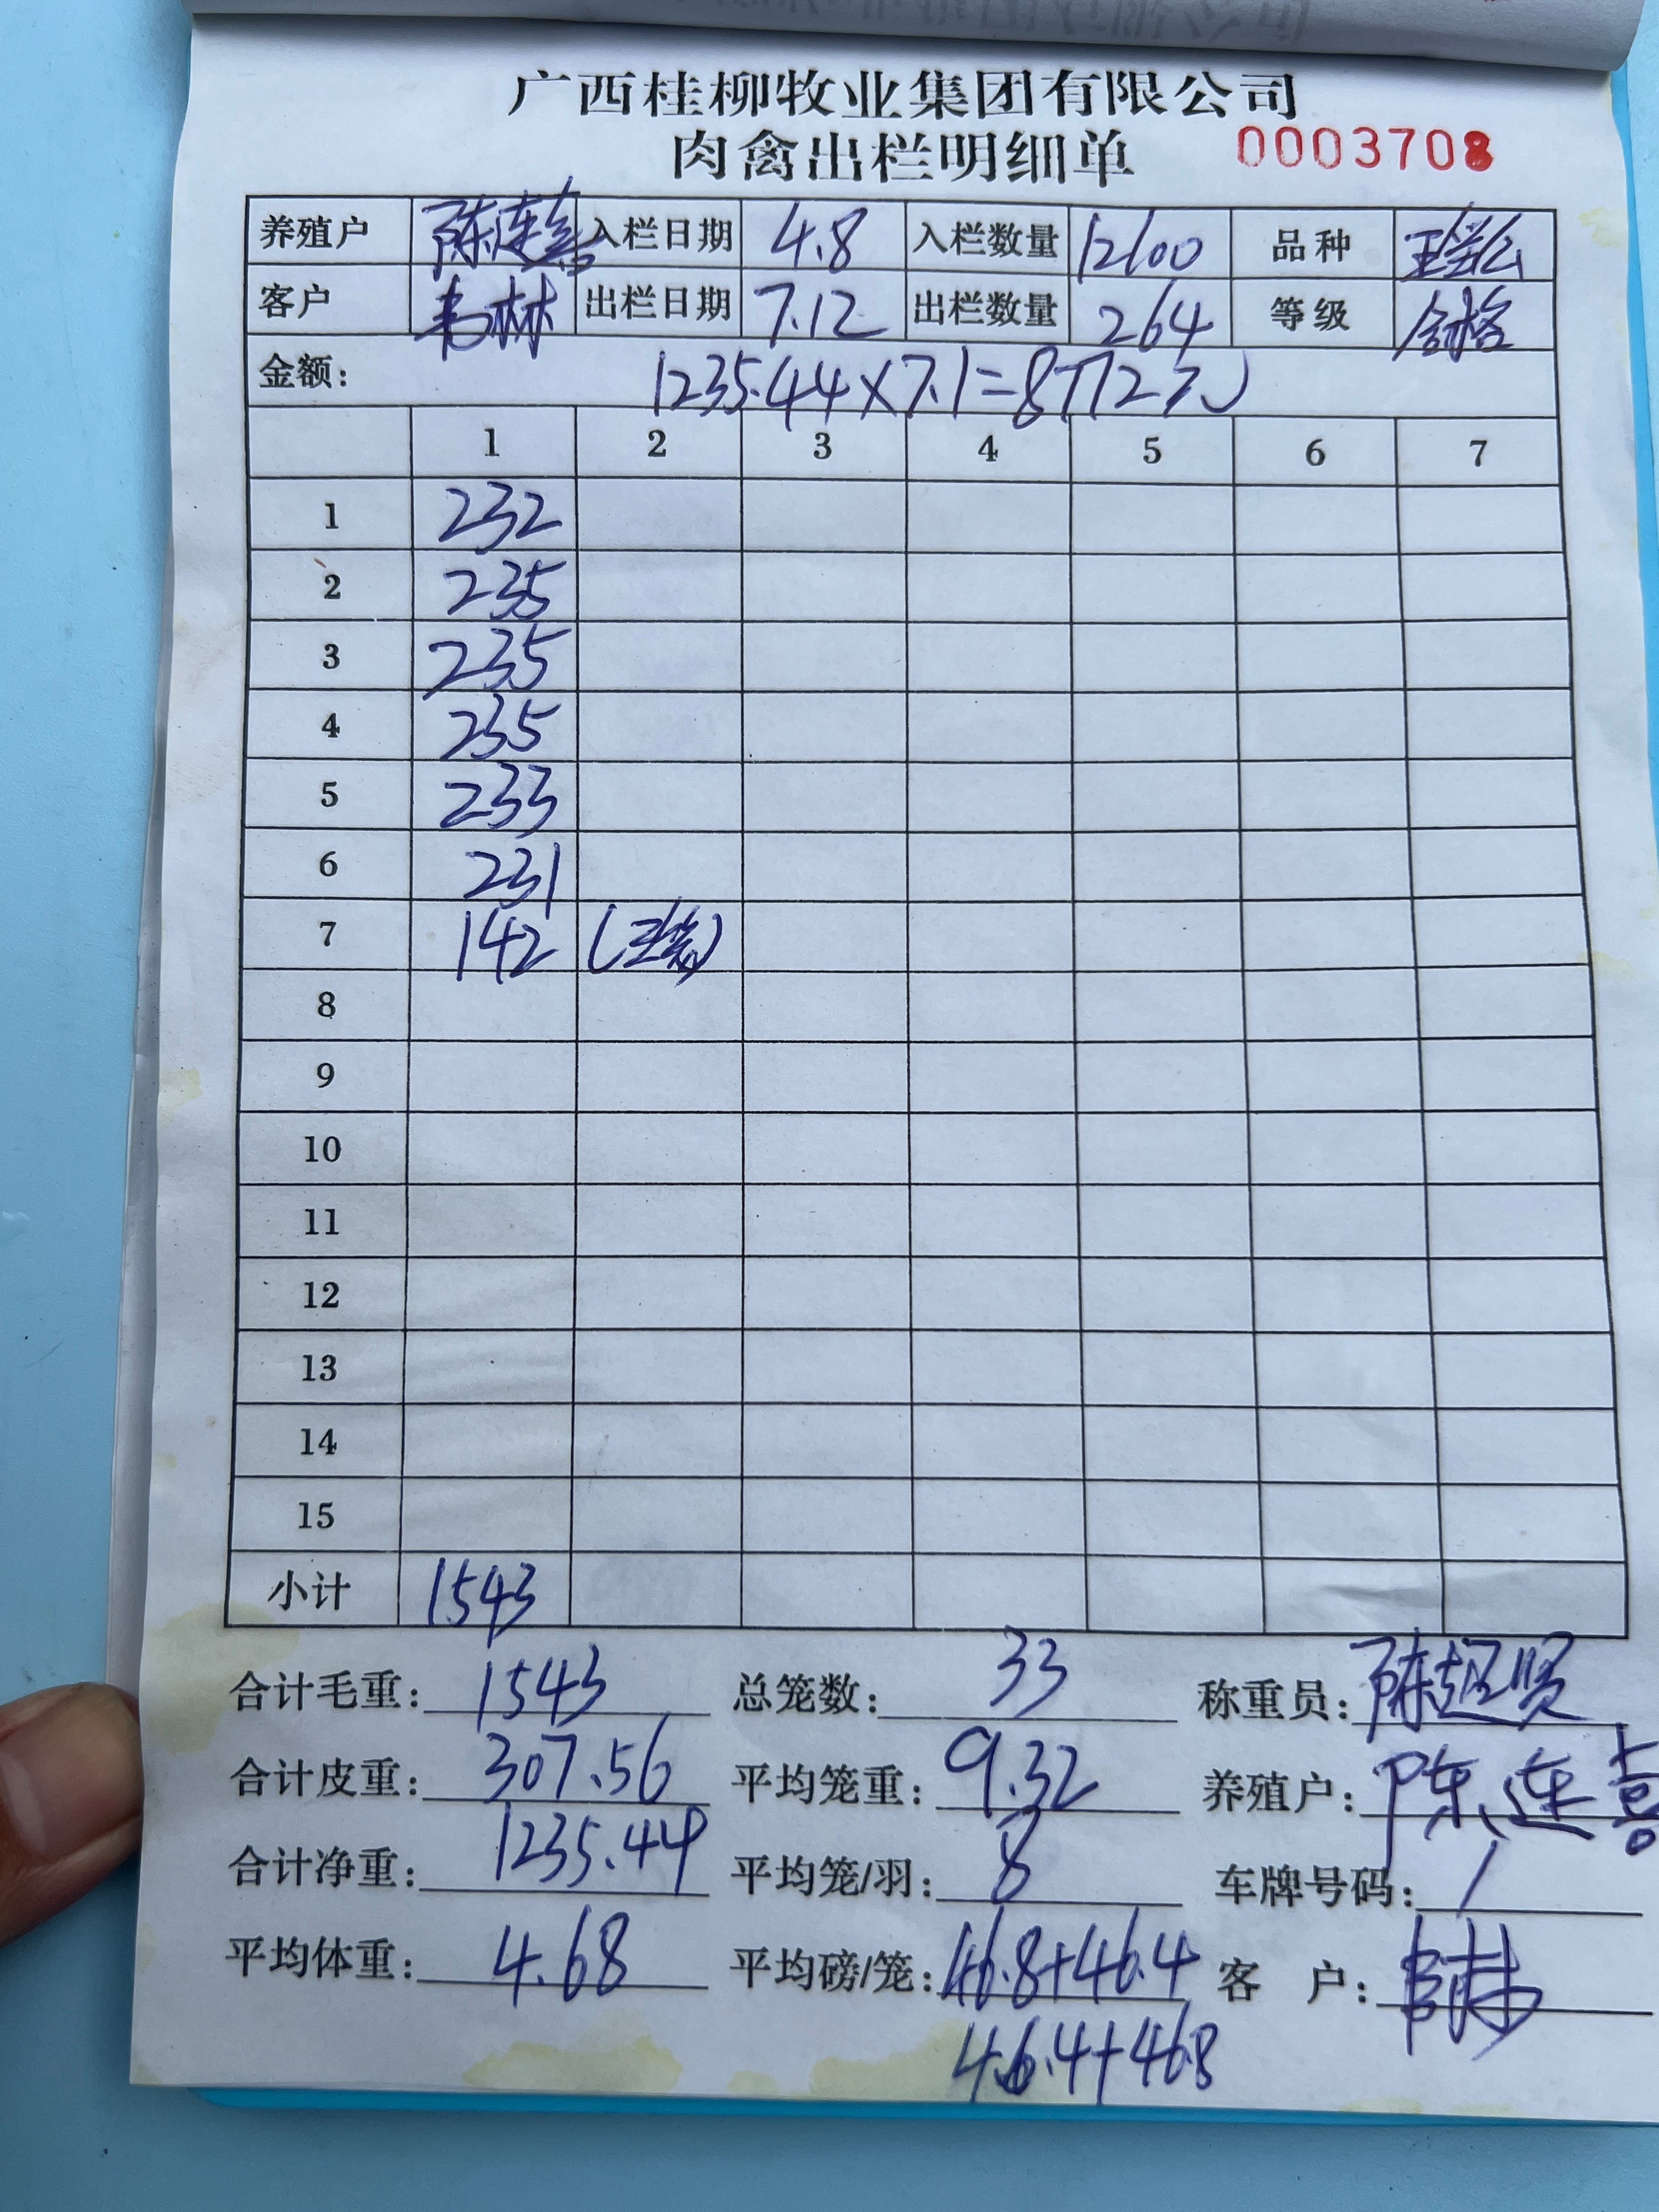 广西桂柳牧业集团有限公司
肉禽出栏明细单 0003708
养殖户 陈连喜 入栏日期 4.8 入栏数量 12100 品种
客户 韦林 出栏日期 7.12 出栏数量 264 等级 合格
金额: 1235.44×7.1=8772元
1 2 3 4 5 6 7
1 232
2 235
3 235
4 235
5 233
6 231
7 142 (三笼)
8
9
10
11
12
13
14
15
小计 1543
合计毛重: 1543 总笼数: 33 称重员: 陈超贤
合计皮重: 307.56 平均笼重: 9.32 养殖户: 陈连喜
合计净重: 1235.44 平均笼/羽: 8 车牌号码: /
平均体重: 4.68 平均磅/笼: 46.8+46.4 客 户:
46.4+46.8